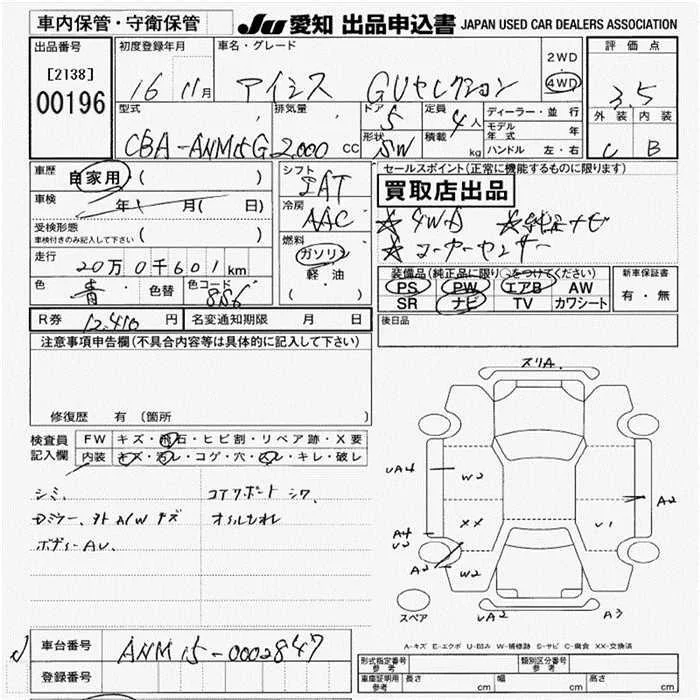 車内保管・守衛保管 JU 愛知 出品申込書 JAPAN USED CAR DEALERS ASSOCIATION
出品番号 初度登録年月 車名・グレード 評価点
[2138] 16 11月 アイシス GUセレクション 2WD 4WD 3.5
00196
型式 排気量 ドア 5 定員 4人 ディーラー・並行 外装 内装
モデル年式 年
CBA-ANM15G 2,000 cc 形状 SW 積載 kg ハンドル 左・右 C B
車歴 自家用 ( ) シフト IAT セールスポイント(正常に機能するものに限ります)
買取店出品
車検 年 月( 日) 冷房 AAC
☆4WD ☆純正ナビ
受検形態 ( )
車検付きのみ記入して下さい
☆コーナーセンサー
燃料 ガソリン 軽油
走行 20万0千601km
装備品(純正品に限り○をつけてください) 新車保証書
色 青 色替 色コード 8S6
PS PW エアB AW 有・無
SR ナビ TV カワシート
R券 12,410円 名変通知期限 月 日 後日品
注意事項申告欄(不具合内容等は具体的に記入して下さい)
スリA.
修復歴 有(箇所 )
検査員記入欄 FW キズ・飛石・ヒビ割・リペア跡・X要
内装 キズ・汚レ・コゲ・穴・ヌレ・キレ・破レ
UA4 W2 A2
シミ、 シワ、
XX U1
A4
U2
ボディーAU.
A2 W2
スペア UA2 A3
A-キズ E-エクボ U-凹み W-補修跡 S-サビ C-腐食 XX-交換済
車台番号 ANM15-0002847
登録番号
型式指定番号 参考 類別区分番号 参考
車庫証明用 参考 長さ cm 幅 cm 高さ cm